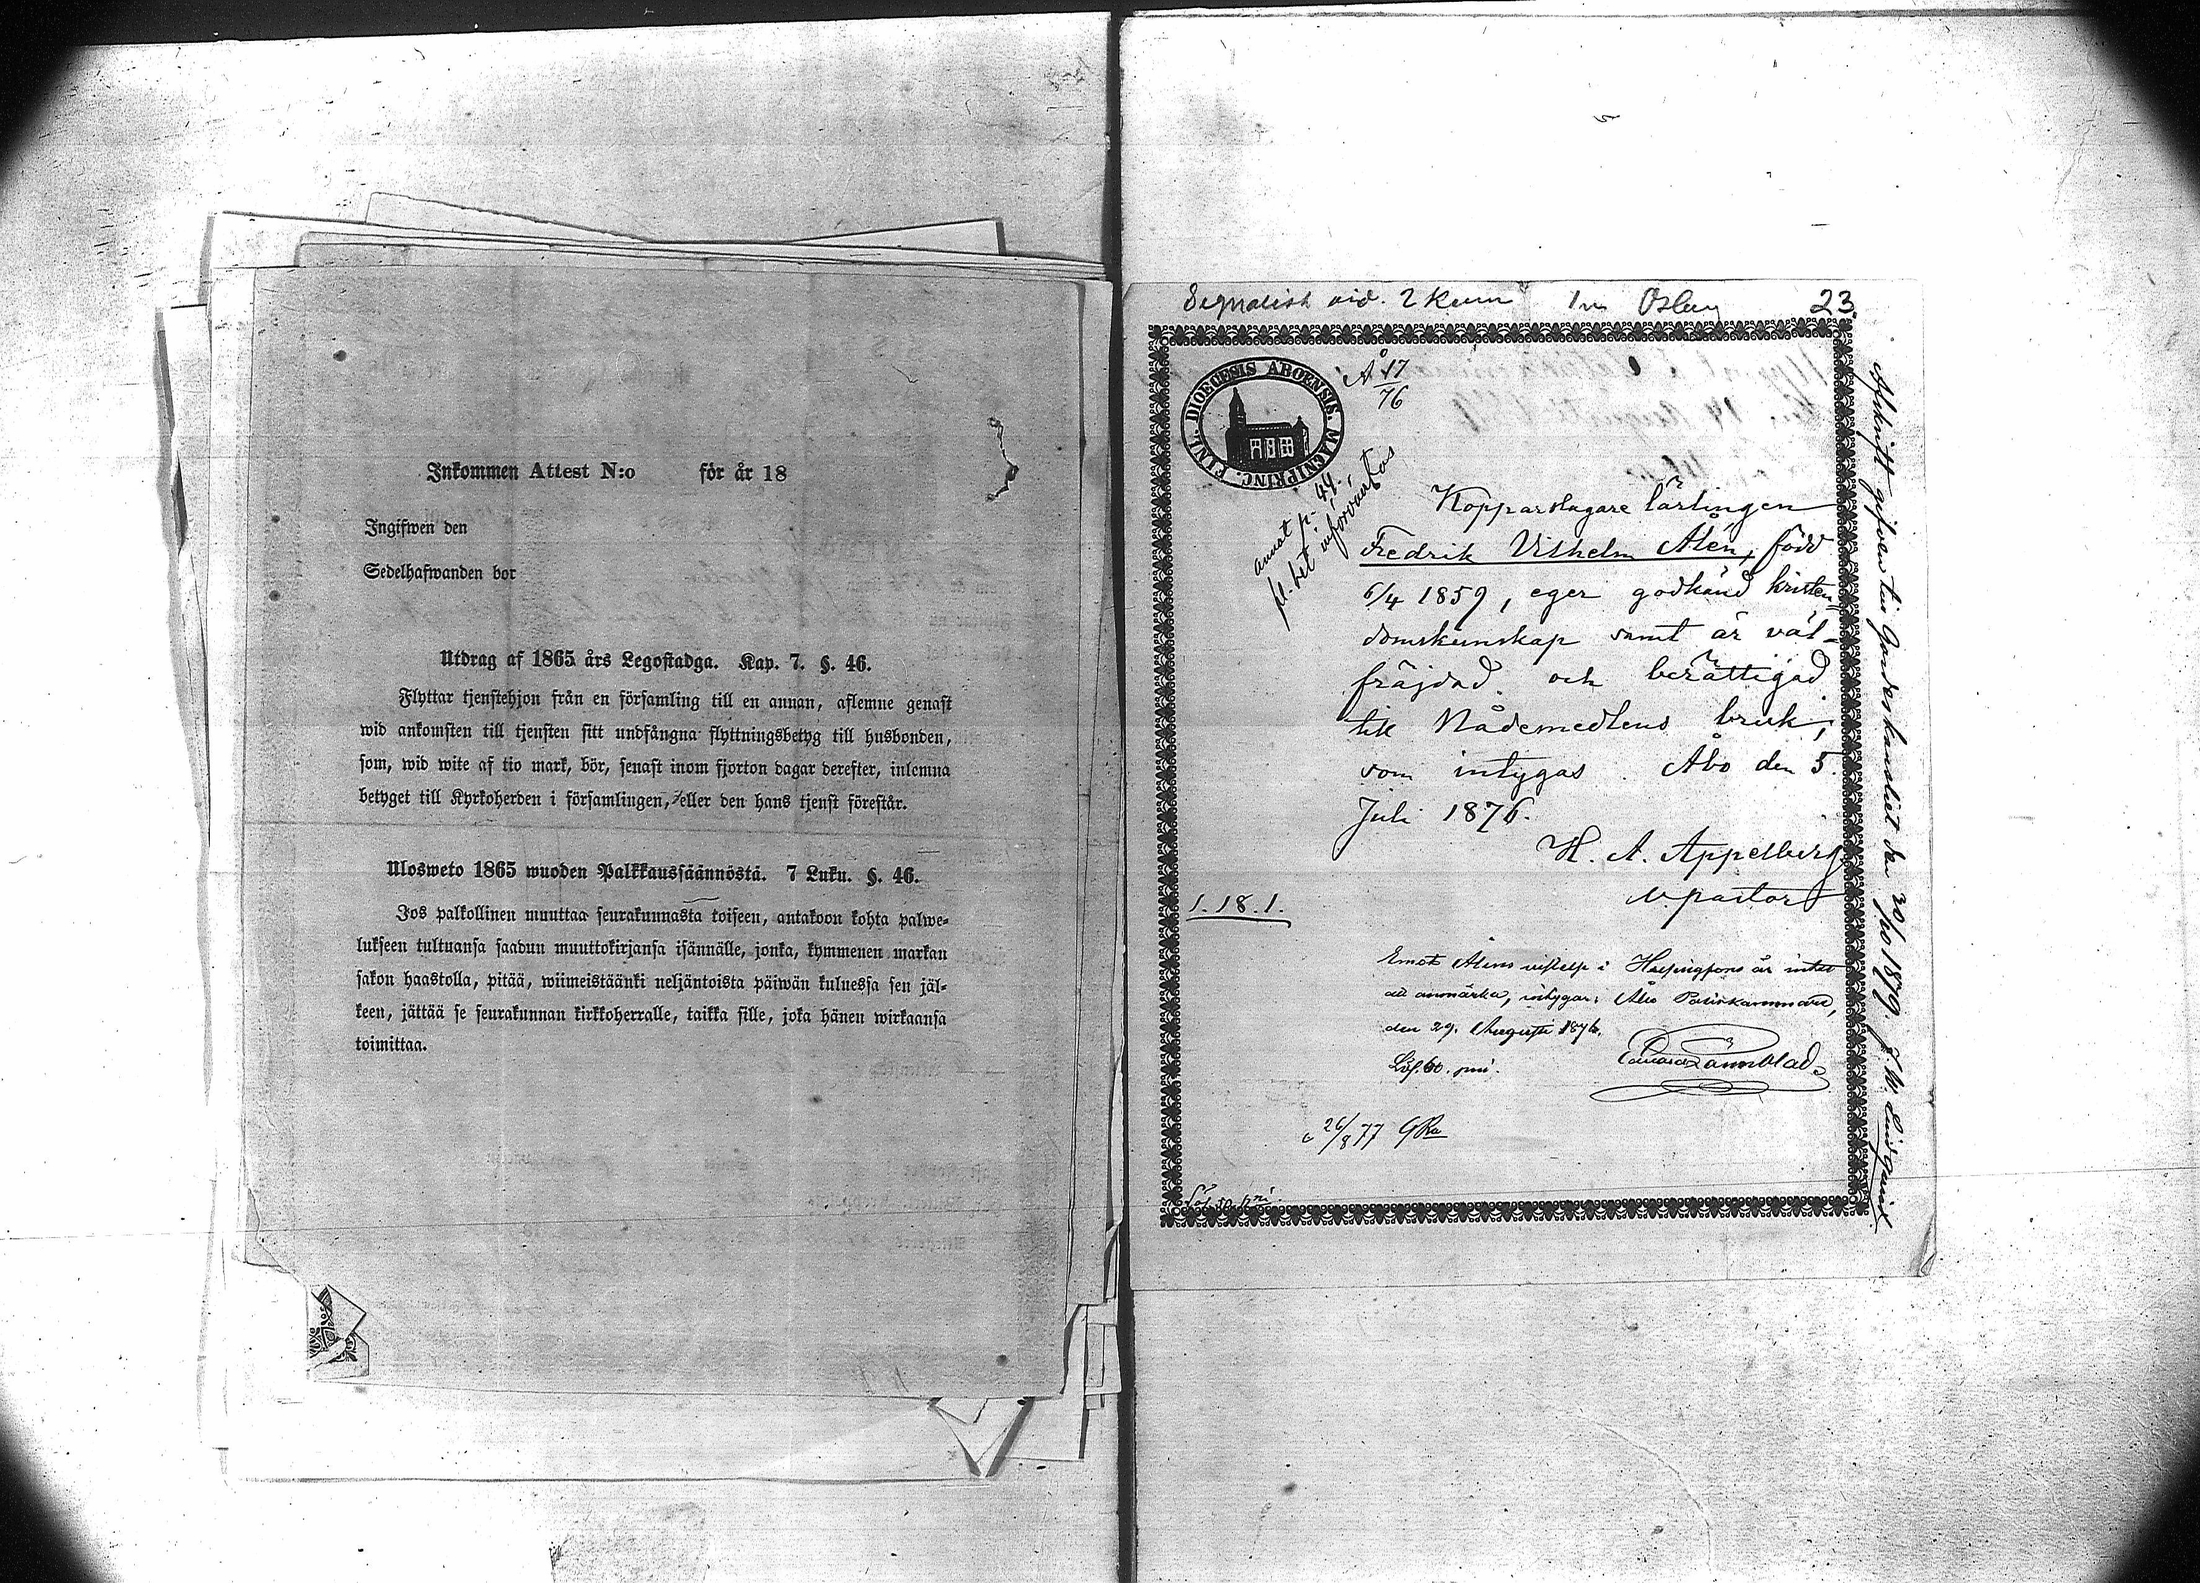 Inkommen Attest N:o för år 18
Ingifwen den
Sedelhafwanden bor
Utdrag af 1865 års Legostadga. Kap. 7. §. 46.
Flyttar tjenstehjon från en församling till en annan, aflemne genast
wid ankomsten till tjensten sitt undfångna flyttningsbetyg till husbonden,
som, wid wite af tio mark, bör, senast inom fjorton dagar derefter, inlemna
betyget till Kyrkoherden i församlingen, eller den hans tjenst förestår.
Ulosweto 1865 wuoden Palkkaussäännöstä. 7 Luku. §. 46.
Jos palkollinen muuttaa seurakunnasta toiseen, antakoon kohta palwe-
lukseen tultuansa saadun muuttokirjansa isännälle, jonka, kymmenen markan
sakon haastolla, pitää, wiimeistäänki neljäntoista päiwän kuluessa sen jäl-
keen, jättää se seurakunnan kirkkoherralle, taikka sille, joka hänen wirkaansa
toimittaa.
23.
FINL. DIOECESIS ABOENSIS. MAGNI PRINC.
Å 17
76
annot p. 49.
Kopparslagare lärlingen
Fredrik Vilhelm Alén, född
6/4 1859, eger godkänd kristen
domskunskap samt är väl-
fräjdad och berättigad
till Nådemedlens bruk;
som intygas. Åbo den 5.
Juli 1876.
H. A. Appelberg
v. pastor
1. 18. 1.
Emot Aléns vistelse i Helsingfors är intet
att anmärka, intygar; Åbo Poliskammare,
den 29. Augusti 1876.
Lös. 60. pni.
26/8 77
Lös. 50 pni.
Afskrift gifven till Gardeskansliet den 30/10 1879. F. W. Lindqvist